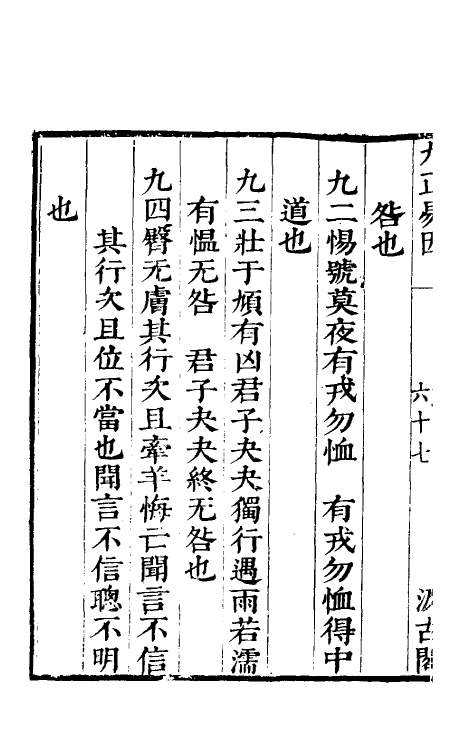 九正易因 六十七 汲古閣
咎也
九二惕號莫夜有戎勿恤 有戎勿恤得中
道也
九三壯于頄有凶君子夬夬獨行遇雨若濡
有慍无咎 君子夬夬終无咎也
九四臀无膚其行次且牽羊悔亡聞言不信
其行次且位不當也聞言不信聰不明
也